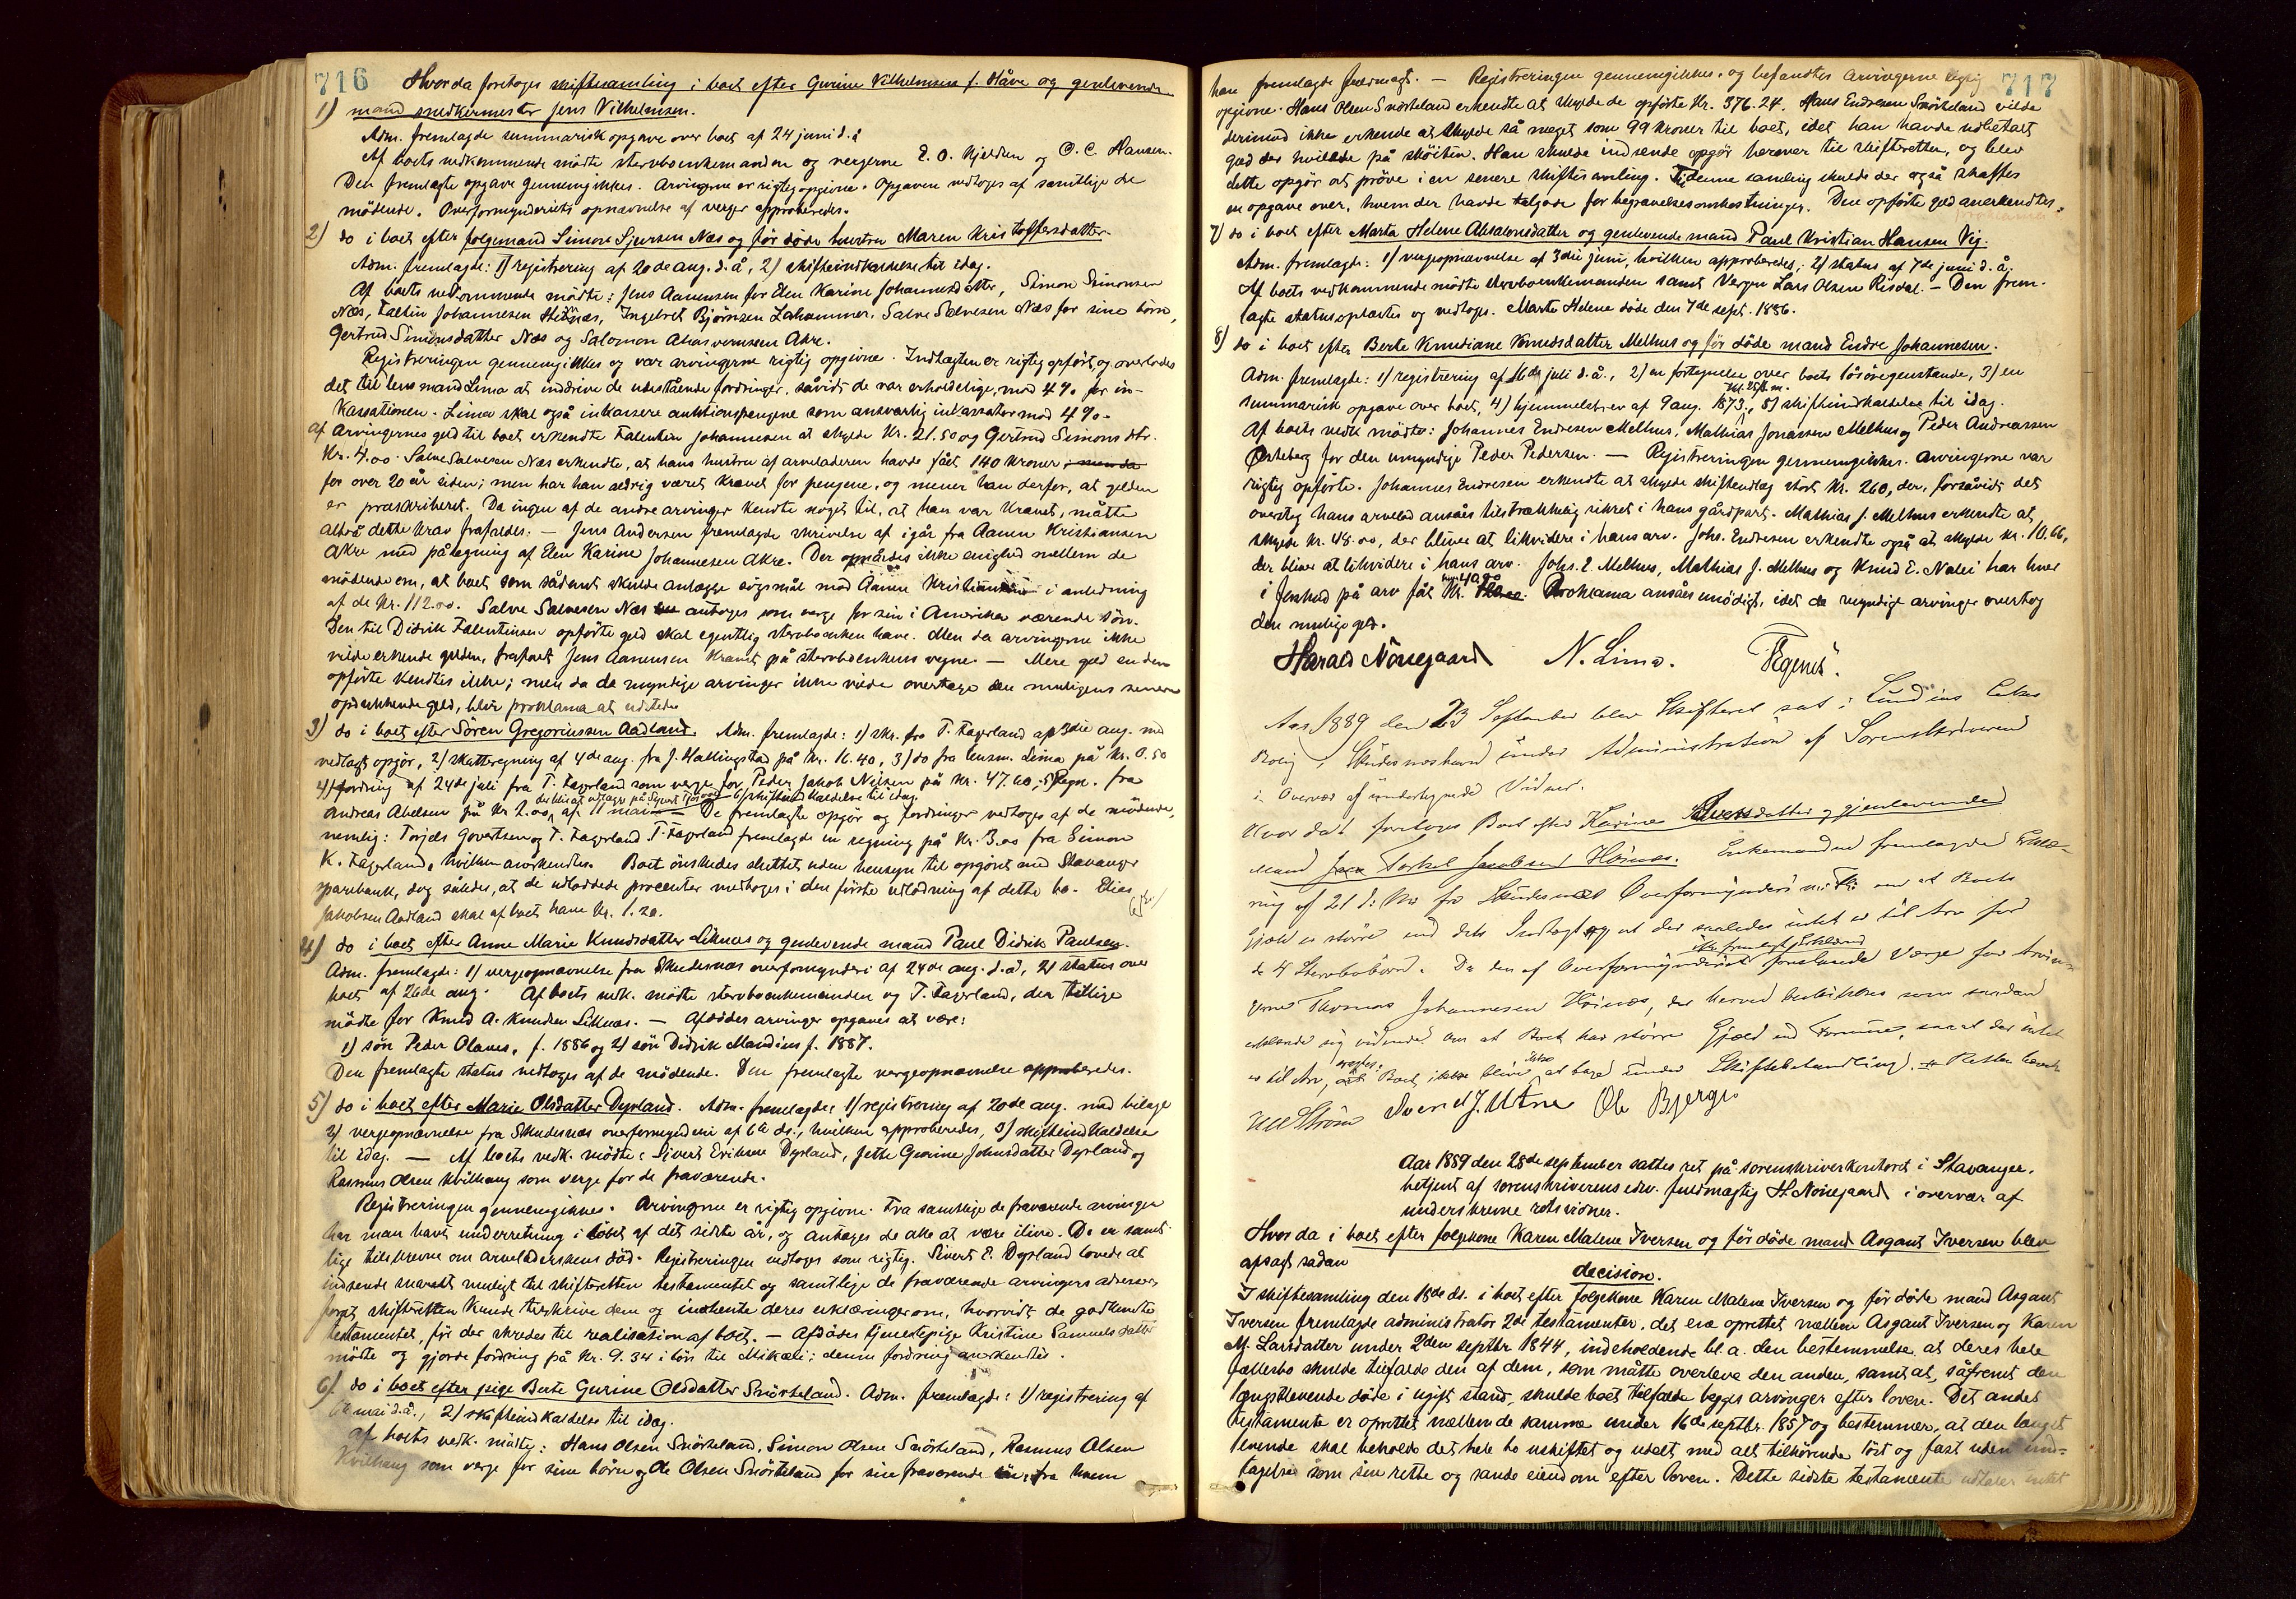 716
Hvorda foretoges skiftesamling i boet efter Gurine Vilhelmsen f. Håve og genlevende
1) mand snedkermester Jens Vilhelmsen.
Adm. fremlagde summarisk opgave over boet af 24 juni d. å
Af boets vedkommende mødte stervboenkemanden og vergerne E. O. Kjeldsen og O. C. Hansen.
Den fremlagte opgave gennemgikkes. Arvingerne er rigtig opgivne. Opgaven vedtoges af samtlige de
mødende. Overformynderiets opnævnelse af verger approberedes.
2) do i boet efter folgemand Simon Sjursen Næs og før døde hustru Maren Kristoffersdatter.
Adm. fremlagde: 1) registrering af 20de aug. d. å, 2) skifteindkaldelse til idag.
Af boets vedkommende mødte: Jens Aanensen for Elen Karine Johannesdatter, Simon Simonsen
Næs, Falentin Johannesen, Ingebret Bjørnsen Lahammer, Salve Salvesen Næs for sine børn,
Gertrud Simonsdatter Næs og Salomon Ahasverusen Akre.
Registreringen gennemgikkes og var arvingerne rigtig opgivne. Indtægten er rigtig opført, og overlodes
det til lensmand Lima at inddrive de udestående fordringer, såvidt de var erholdelige, mod 4 % for in-
kassationen. Lima skal også inkassere auktionspengene som ansvarlig inkassator mod 4 %.
Af arvingernes gæld til boet erkendte Falentin Johannesen at skylde Kr. 21.50 og Gertrud Simonsdtr.
Kr. 4.00. Salve Salvesen Næs erkendte, at hans hustru af arveladeren havde fået 140 kroner
for over 20 år siden; men har han aldrig været krævet for pengene, og mener han derfor, at gælden
er præskriberet. Da ingen af de andre arvinger kendte noget til, at han var krævet, måtte
altså dette krav frafaldes. — Jens Andersen fremlagde skrivelse af igår fra Aanen Kristiansen
Akre med påtegning af Elen Karine Johannesen Akre. Der opnåedes ikke enighed mellem de
mødende om, at boet som sådant skulde anlægge søgsmål mod Aanen Kristiansen i anledning
af de Kr. 112.00. Salve Salvesen Næs antoges som verge for sin i Amerika værende søn.
Den til Didrik Falentinsen opførte gæld skal egentlig stervboenken have. Men da arvingerne ikke
vilde erkende gælden, frafaldt Jens Aanensen kravet på stervboenkens vegne. — Mere gæld end den
opførte kendtes ikke; men da de myndige arvinger ikke vilde overtage den muligens senere
opdukkende gæld, blir proklama at udstede.
3) do i boet efter Søren Gregoriussen Aadland. Adm. fremlagde: 1) skr. fra T. Fagerland af 3die aug. med
vedlagt opgør, 2) skatteregning af 4de aug. fra J. Hallingstad på Kr. 16.40, 3) do fra lensm. Lima på Kr. 0.50
4) fordring af 24de juli fra T. Fagerland som verge for Peder Jakob Nilsen på Kr. 47.60, 5) Regn. fra
Andreas Abelsen på Kr 2.00, af 11 mai 6) skifteindkaldelse til idag. De fremlagte opgør og fordringer vedtoges af de mødende,
nemlig: Torjels Govertsen og T. Fagerland. T. Fagerland fremlagde en regning på Kr. 3.00 fra Simon
K. Fagerland, hvilken anerkendtes. Boet ønskedes sluttet uden hensyn til opgjøret med Stavanger
sparebank, dog således, at de udloddede procenter medtages i den første utlodning af dette bo. Elias
Jakobsen Aadland skal af boet have Kr. 1.20.
4) do i boet efter Anne Marie Knudsdatter Liknæs og genlevende mand Paul Didrik Paulsen.
Adm. fremlagde: 1) vergeopnævnelse fra Skudesnæs overformynderi af 24de aug. d. å, 2) status over
boet af 26de aug. Af boets vedk. mødte stervboenkemanden og T. Fagerland, der tillige
mødte for Knud A. Knudsen Liknæs. — Afdødes arvinger opgaves at være:
1) søn Peder Olaus, f. 1886 og 2) søn Didrik Mandius f. 1887.
Den fremlagte status vedtoges af de mødende. Den fremlagte vergeopnævnelse approberedes.
5) do i boet efter Marie Olsdatter Dyrland. Adm. fremlagde: 1) registrering af 20de aug. med bilage
2) vergeopnævnelse fra Skudesnæs overformynderi af 6te ds., hvilken approberedes, 3) skifteindkaldelse
til idag. — Af boets vedk. mødte: Sivert Eriksen Dyrland, Jette Gurine Johnsdatter Dyrland og
Rasmus Olsen Kvilhaug som verge for de fraværende.
Registreringen gennemgikkes. Arvingerne er rigtig opgivne. Fra samtlige de fraværende arvinger
har man havt underretning i løbet af det sidste år, og antages de alle at være ilive. De er samt-
lige tilskrevne om arveladerskens død. Registreringen vedtoges som rigtig. Sivert E. Dyrland lovede at
indsende snarest muligt til skifteretten testamentet og samtlige de fraværende arvingers adresser,
forat skifteretten kunde tilskrive dem og indhente deres erklæringer om, hvorvidt de godkendte
testamentet, før der skredes til realisation af boet. — Afdødes tjenestepige Kristine Samuelsdatter
mødte og gjorde fordring på Kr. 9.34 i løn til Mikæli; denne fordring anerkendtes.
6) do i boet efter pige Berte Gurine Olsdatter Snørteland. Adm. fremlagde: 1) registrering af
mai d. å., 2) skifteindkaldelse til idag.
Af boets vedk. mødte: Hans Olsen Snørteland, Simon Olsen Snørteland, Rasmus Olsen
Kvilhaug som verge for sine børn og Ole Olsen Snørteland for sin fraværende søn, fra hvem
717
han fremlagde fuldmagt. — Registreringen gennemgikkes, og befandtes arvingerne rigtig
opgivne. Hans Olsen Snørteland erkendte at skylde de opførte Kr. 376.24. Hans Endresen Snørteland vilde
derimod ikke erkende at skylde så meget som 99 kroner til boet, idet han havde udbetalt
gæld der hvilede på skøiten. Han skulde indsende opgør herover til skifteretten, og blev
dette opgør at prøve i en senere skiftesamling. Til denne samling skulde der også skaffes
en opgave over, hvem der havde tilgode for begravelsesomkostninger. Den opførte gæld anerkendtes.
7) do i boet efter Marta Helene Absalonsdatter og genlevende mand Paul Kristian Hansen Vig.
Adm. fremlagde: 1) vergeopnævnelse af 3die juni, hvilken approberedes; 2) status af 7de juni d. å.
Af boets vedkommende mødte stervboenkemanden samt Vergen Lars Olsen Risdal. — Den frem-
lagte status oplæstes og vedtoges. Marta Helene døde den 7de sept. 1886.
8) do i boet efter Berte Knudiane Knudsdatter Melhus og før døde mand Endre Johannesen.
Adm. fremlagde: 1) registrering af 16de juli d. å., 2) en fortegnelse over boets løsøregenstande, 3) en
summarisk opgave over boet, 4) hjemmelsbrev af 9 aug. 1873, 5) skifteindkaldelse til idag.
Af boets vedk mødte: Johannes Endresen Melhus, Mathias Jonassen Melhus og Peder Andreassen
Østebøg for den umyndige Peder Pedersen. — Registreringen gennemgikkes. Arvingerne var
rigtig opførte. Johannes Endresen erkendte at skylde skifteudlæg stort Kr. 260, der, forsåvidt det
oversteg hans arvelod ansåes tilstrækkelig sikret i hans gårdpart. Mathias J. Melhus erkendte at
skylde Kr. 48.00, der bliver at likvidere i hans arv. Johs. Endresen erkendte også at skylde Kr. 10.66,
der bliver at likvidere i hans arv. Johs. E. Melhus, Mathias J. Melhus og Knud E. Nalei har hver
i forskud på arv fåt Kr. 40.00. Proklama ansåes unødigt, idet de myndige arvinger overtog
den mulige gæld.
Harald Nörregaard N. Lima.
Aar 1889 den 23 September blev Skifteret sat i Lundins Enkes
Bolig i Skudesneshavn under Administration af Sorenskriveren
i Overvær af undertegnede Vidner.
Hvor da foretoges Boet efter Karine Iversdatter og gjenlevende
Mand Torkel Jacobsen Høinæs. Enkemanden fremlagde Erklæ-
ring af 21 d. M. fra Skudesnæs Overformynderi om at Boets
Gjæld er større end dets Indtægt og at der saaledes intet er til Arv for
de 4 Stervbobørn. Da den af Overformynderiet i den fremlagte Erklæring foreslaaede Værge for Arvin-
gerne Thomas Johannesen Høinæs, der herved beskikkes som saadan
erklærede sig vidende om at Boet har større Gjæld end Formue, saa at der intet
er til Arv, vedtoges, at Boet ikke bliver at tage under Skiftebehandling. Retten hævet
Svend J. Utne Ole Bjerge
Aar 1889 den 28de september sattes ret på sorenskriverkontoret i Stavanger,
betjent af sorenskriverens edsv. fuldmægtig H. Nörregaard i overvær af
underskrevne retsvidner.
Hvor da i boet efter folgekone Karen Malene Iversen og før døde mand Asgaut Iversen blev
afsagt sadan
decision.
I skiftesamling den 18de ds. i boet efter folgekone Karen Malene Iversen og før døde mand Asgaut
Iversen fremlagde administrator 2de testamenter, det ene oprettet mellem Asgaut Iversen og Karen
M. Larsdatter under 2den septbr 1844, indeholdende bl. a. den bestemmelse, at deres hele
fællesbo skulde tilfalde den af dem, som måtte overleve den anden, samt at, såfremt den
længstlevende døde i ugift stand, skulde boet tilfalde begges arvinger efter loven. Det andet
testamente er oprettet mellem de samme under 16de septbr. 1857 og bestemmer, at den længst
levende skal beholde det hele bo uskiftet og udelt med alt tilhørende løst og fast uden und-
tagelse som sin rette og sande eiendom efter loven. Dette sidste testamente udtaler intet